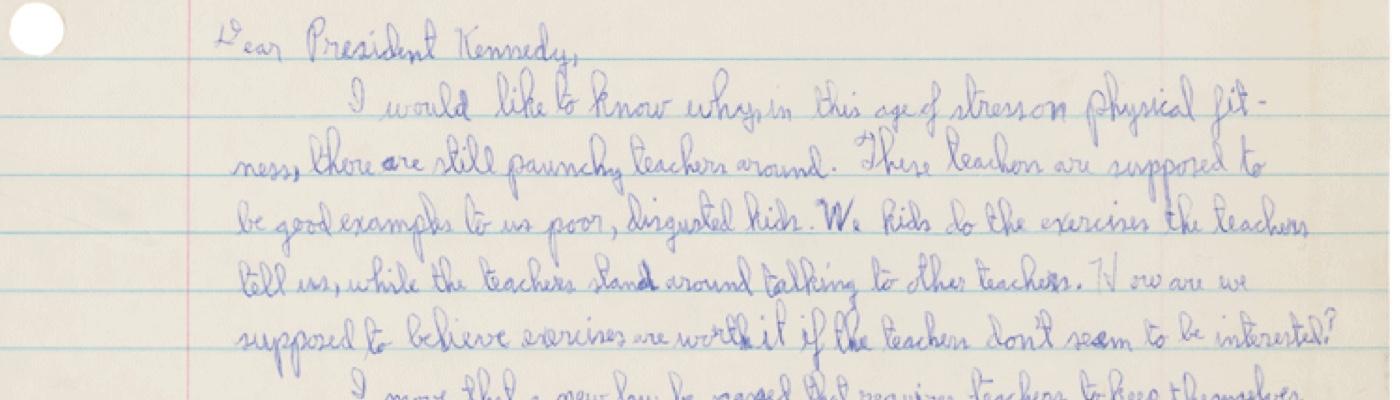 Dear President Kennedy,
I would like to know why, in this age of stress on physical fit-
ness, there are still paunchy teachers around. These teachers are supposed to
be good examples to us poor, disgusted kids. We kids do the exercises the teachers
tell us, while the teachers stand around talking to other teachers. How are we
supposed to believe exercises are worth it if the teachers don't seem to be interested?
I move that a new law be passed that requires teachers to keep themselves